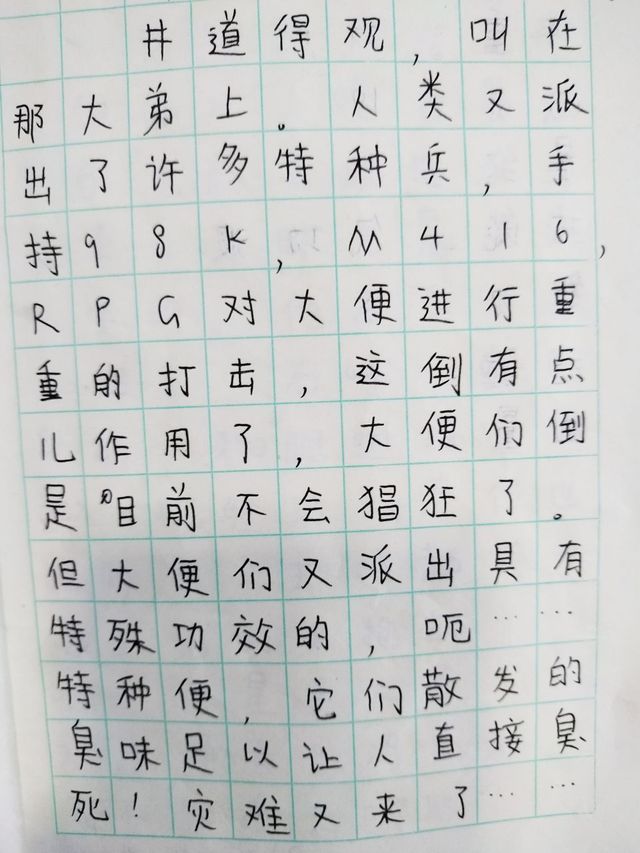 井道得观，叫在
那大弟上。人类又派
出了许多特种兵，手
持98K，M416，
RPG对大便进行重
重的打击，这倒有点
儿作用了，大便们倒
是目前不会猖狂了。
但大便们又派出具有
特殊功效的，呃……
特种便，它们散发的
臭味足以让人直接臭
死！灾难又来了……